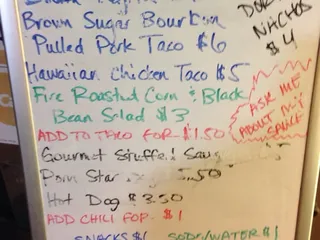 Brown Sugar Bourbon
Pulled Pork Taco $6
DORITO
NACHOS
$4
Hawaiian Chicken Taco $5
Fire Roasted Corn & Black
Bean Salad $3
ADD TO TACO FOR $1.50
ASK ME
ABOUT MY
SAUCE
Gourmet Stuffed
Porn Star 5.50
Hot Dog $3.50
ADD CHILI FOR $1
SNACKS $1 SODA/WATER $1